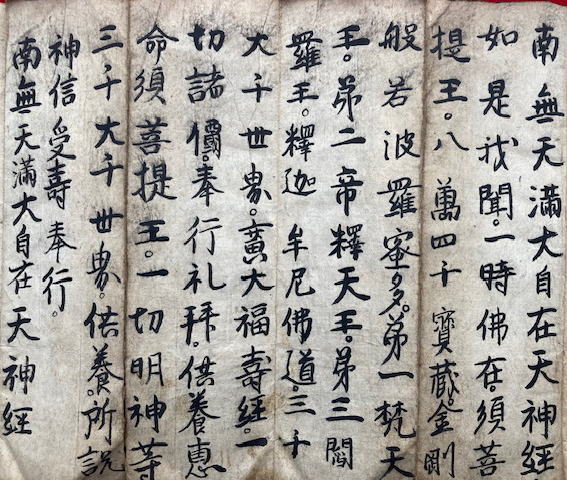 南無天滿大自在天神經
如是我聞。一時佛在。須菩
提王。八萬四千寶藏。金剛
般若波羅蜜多。弟一梵天
王。弟二帝釋天王。弟三閻
羅王。釋迦牟尼佛道。三千
大千世界。廣大福壽經。一
切諸。奉行礼拜。供養恵
命須菩提王。一切明神等
三千大千世界。供養。所説
神信受壽奉行。
南無天滿大自在天神經